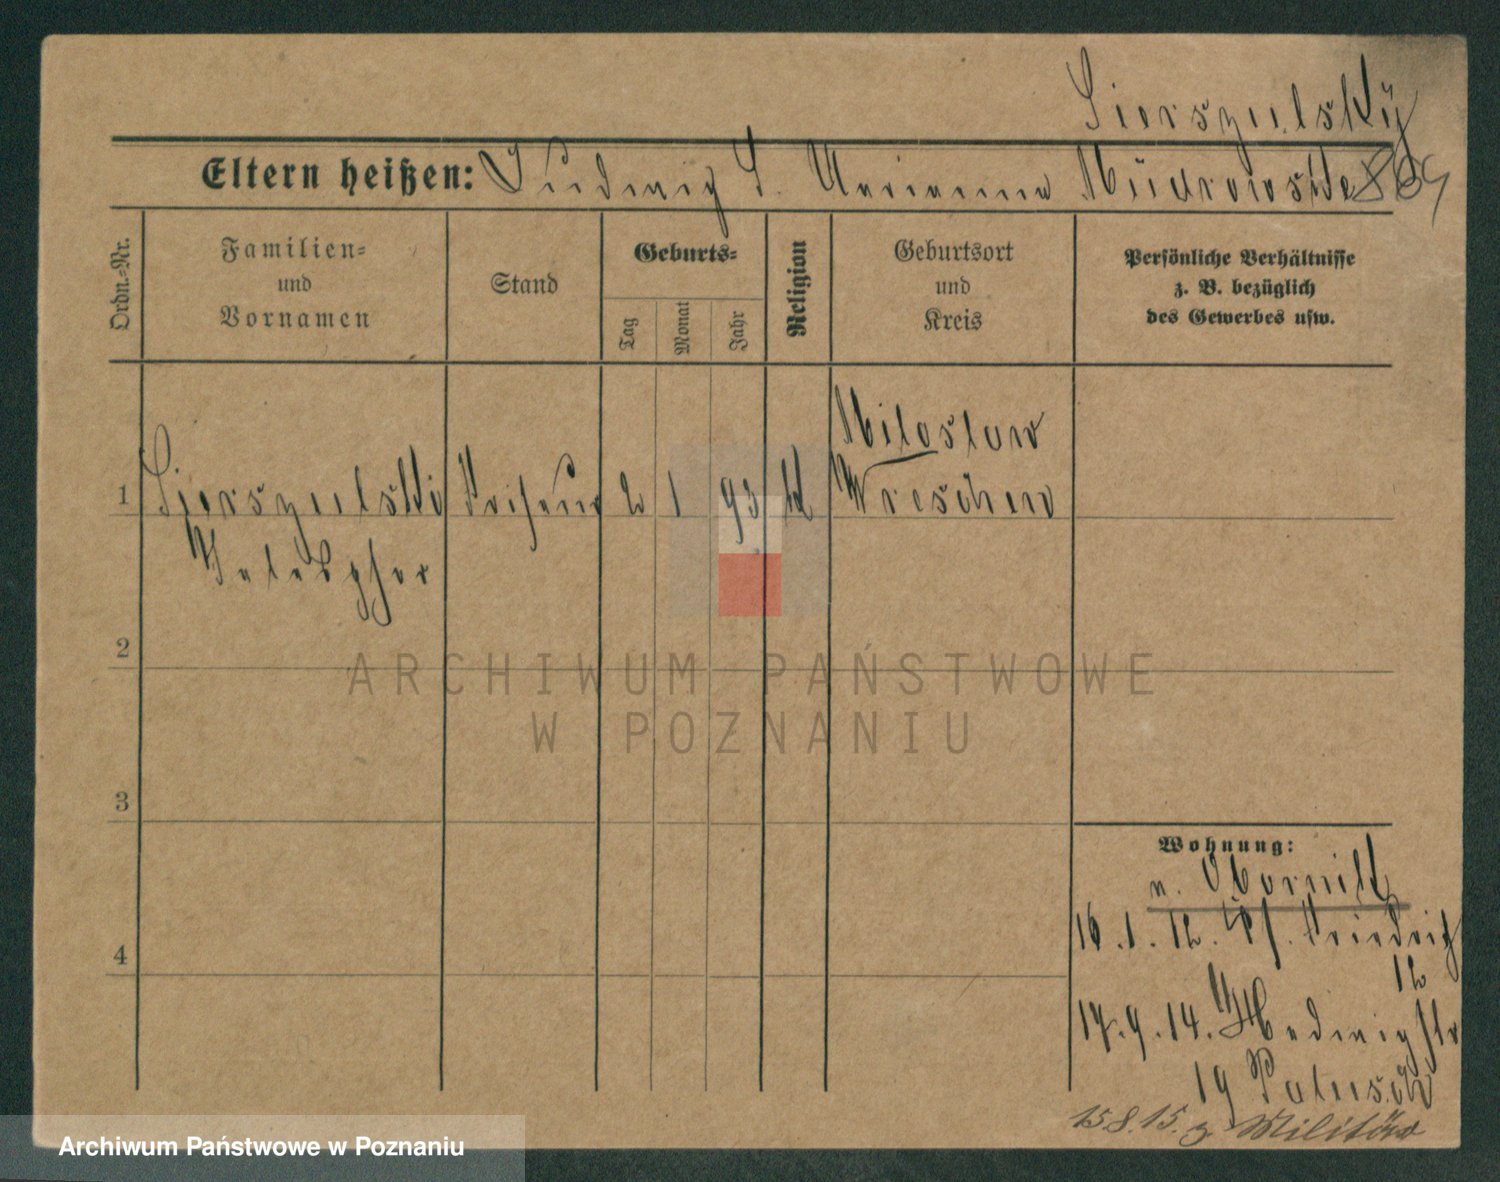 Sierszulski
Eltern heißen: Ludwig S. Marianna
Ordn.-Nr.
Familien-
und
Vornamen
Stand
Geburts-
Tag
Monat
Jahr
Religion
Geburtsort
und
Kreis
Persönliche Verhältnisse
z. B. bezüglich
des Gewerbes usw.
Miloslaw
1 Sierszulski Friseur 2 1 93 k Wreschen
Telesphor
2
ARCHIWUM PAŃSTWOWE
W POZNANIU
3
Wohnung:
n. Obornik
4
16.1.12. Friedrich
12
17.9.14. Hedwigstr
19
15.8.15. z. Militär
Archiwum Państwowe w Poznaniu